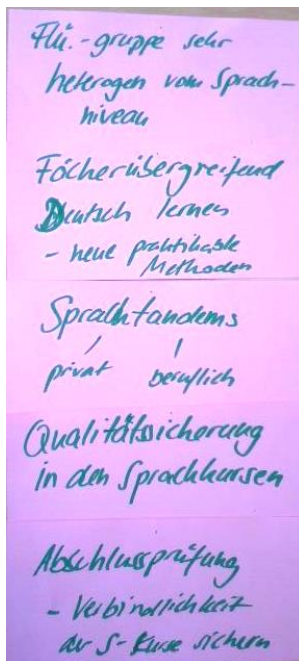 Flü.-gruppe sehr
heterogen vom Sprach-
niveau
Fächerübergreifend
Deutsch lernen
- neue praktikable
Methoden
Sprachtandems
privat beruflich
Qualitätssicherung
in den Sprachkursen
Abschlussprüfung
- Verbindlichkeit
der S-Kurse sichern